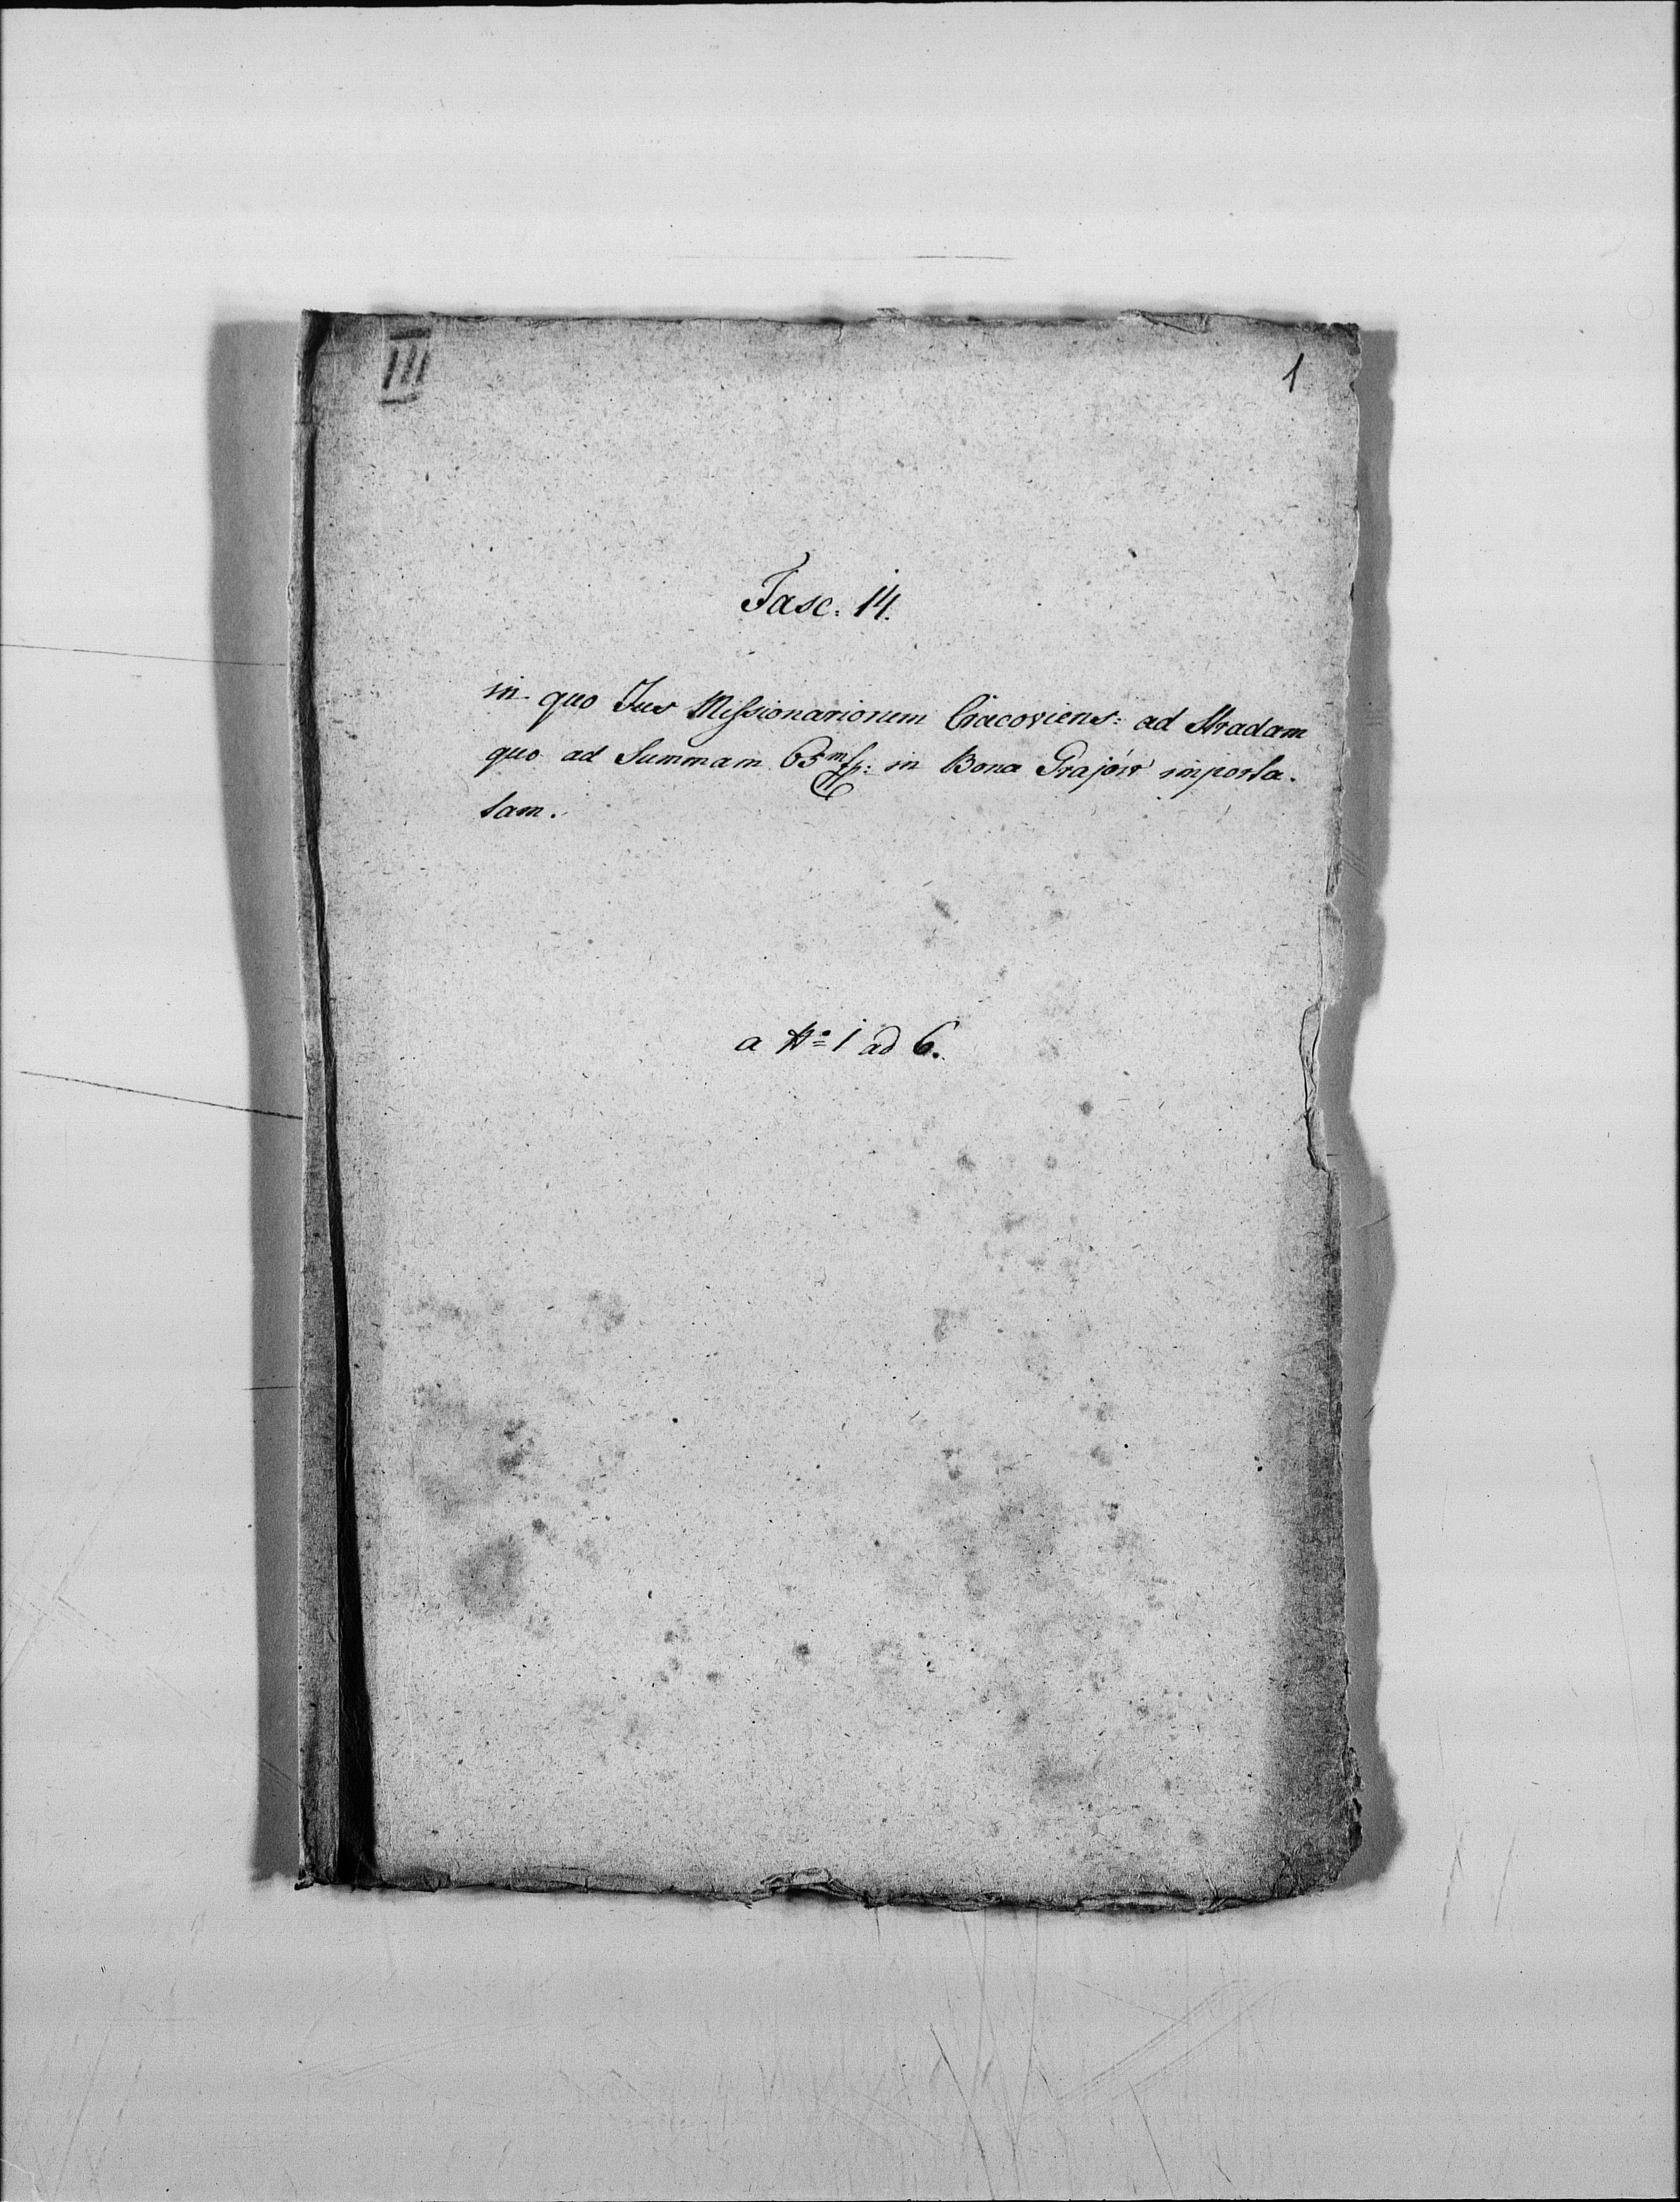 III
1
Fasc: 14.
in quo Jus Missionariorum Cracoviens: ad Stradam
quo ad Summam 65 m fp: in Bona Grajów importa-
tam.
a No 1 ad 6.